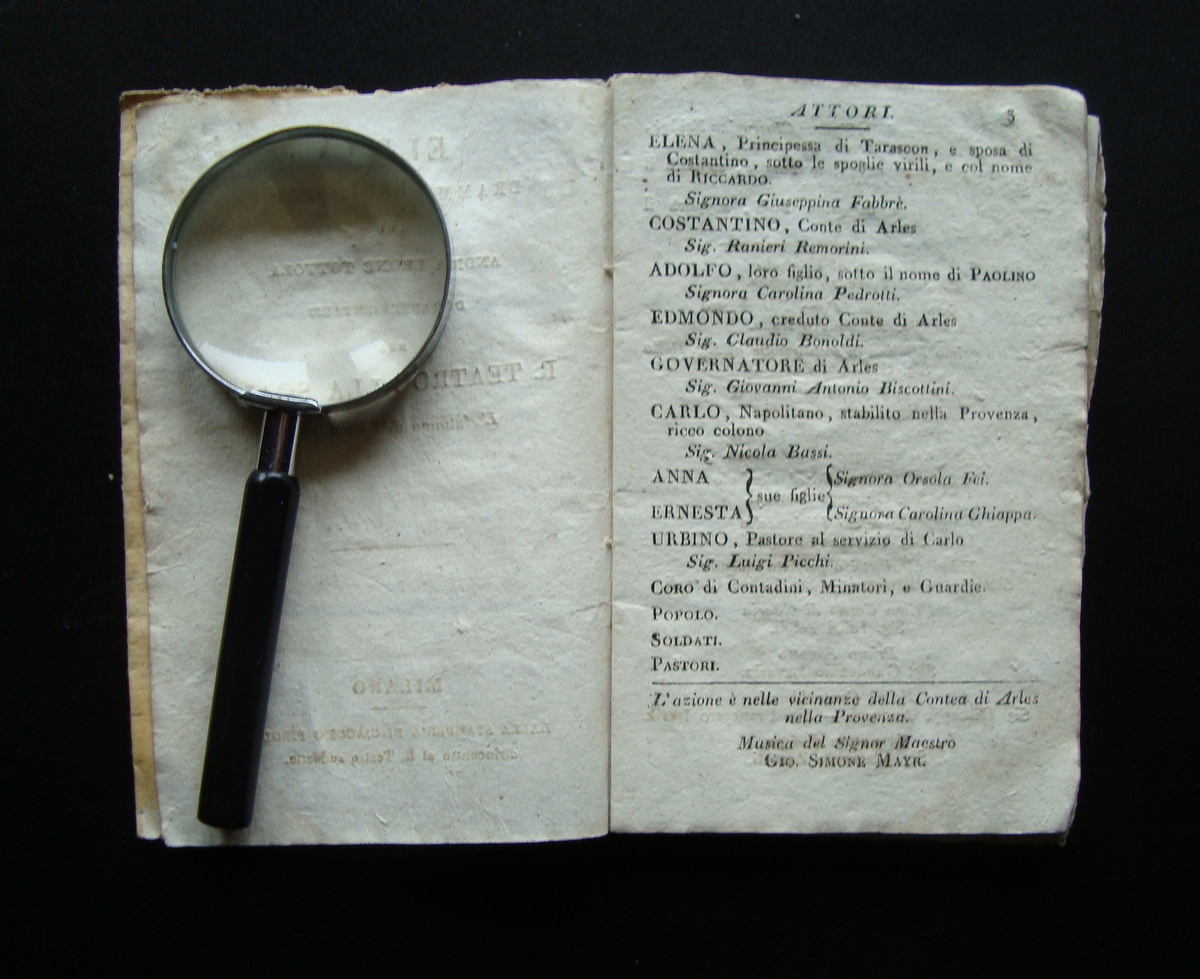 ATTORI.
3
ELENA, Principessa di Tarascon, e sposa di
Costantino, sotto le spoglie virili, e col nome
di RICCARDO.
Signora Giuseppina Fabbrè.
COSTANTINO, Conte di Arles
Sig. Ranieri Remorini.
ADOLFO, loro figlio, sotto il nome di PAOLINO
Signora Carolina Pedrotti.
EDMONDO, creduto Conte di Arles
Sig. Claudio Bonoldi.
GOVERNATORE di Arles
Sig. Giovanni Antonio Biscottini.
CARLO, Napolitano, stabilito nella Provenza,
ricco colono
Sig. Nicola Bassi.
ANNA } sue figlie { Signora Orsola Fei.
ERNESTA } { Signora Carolina Ghiappa.
URBINO, Pastore al servizio di Carlo
Sig. Luigi Picchi.
CORO di Contadini, Minatori, e Guardie.
POPOLO.
SOLDATI.
PASTORI.
L'azione è nelle vicinanze della Contea di Arles
nella Provenza.
Musica del Signor Maestro
GIO. SIMONE MAYR.